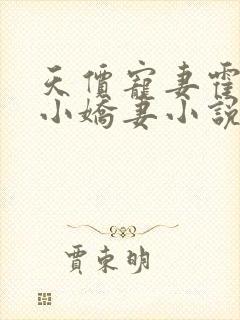 天價寵妻霍
小嬌妻小說
賈東明